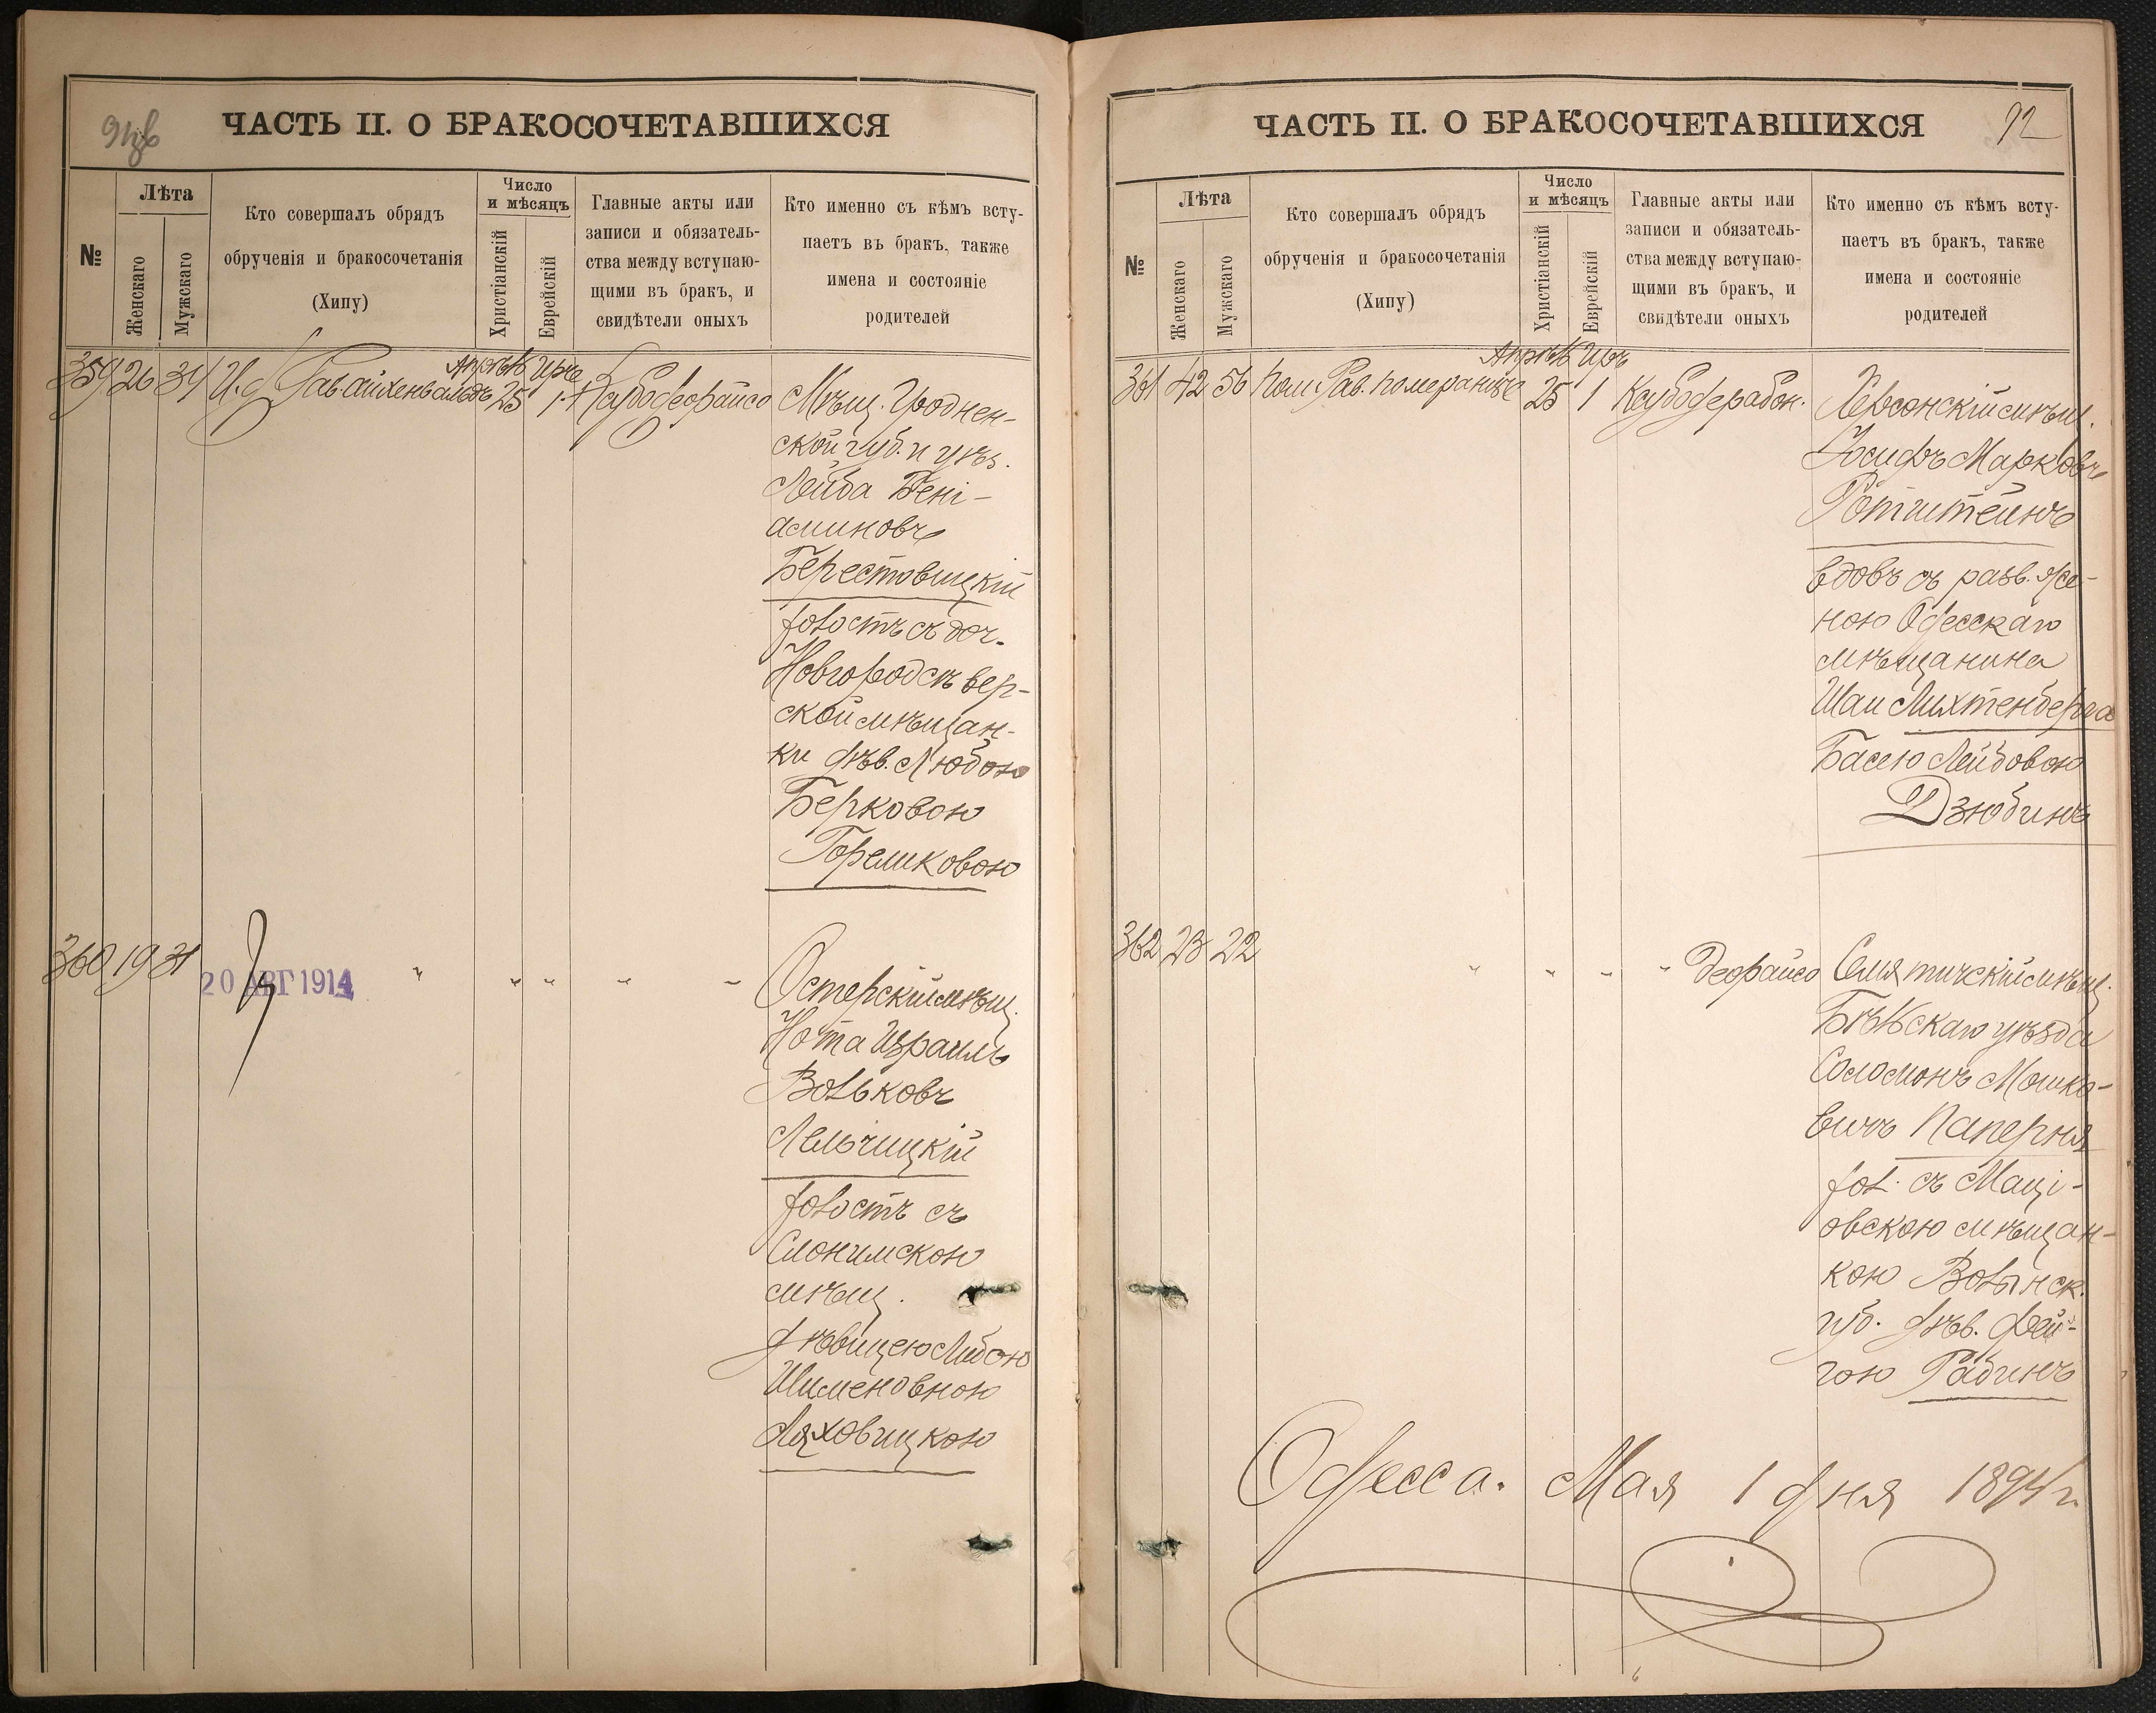 91об
ЧАСТЬ II. О БРАКОСОЧЕТАВШИХСЯ
№
Лѣта
Женскаго
Мужскаго
Кто совершалъ обрядъ
обрученія и бракосочетанія
(Хипу)
Число
и мѣсяцъ
Христіанскій
Еврейскій
Главные акты или
записи и обязатель-
ства между вступаю-
щими въ бракъ, и
свидѣтели оныхъ
Кто именно съ кѣмъ всту-
паетъ въ бракъ, также
имена и состояніе
родителей
Апрѣль Иръ
359 26 34 И. д. Рав. Айхенвальдъ 25 1
Мѣщ. Гроднен-
ской губ. и уѣз.
Лейба Бені-
аминовъ
Берестовицкій
холостъ съ доч.
Новгородсѣвер-
ской мѣщан-
ки дѣв. Любою
Берковою
Горешковою
360 19 31
20 АВГ 1914
" " " " "
Остерскій мѣщ.
Нота Израиль
Вольковъ
Лельчицкій
холостъ съ
Слонимскою
мѣщ.
дѣвицею Либою
Шименовною
Ляховицкою
ЧАСТЬ II. О БРАКОСОЧЕТАВШИХСЯ
92
№
Лѣта
Женскаго
Мужскаго
Кто совершалъ обрядъ
обрученія и бракосочетанія
(Хипу)
Число
и мѣсяцъ
Христіанскій
Еврейскій
Главные акты или
записи и обязатель-
ства между вступаю-
щими въ бракъ, и
свидѣтели оныхъ
Кто именно съ кѣмъ всту-
паетъ въ бракъ, также
имена и состояніе
родителей
Апрѣль Иръ
361 42 56 Пом. Рав. Померанцъ 25 1
Херсонскій мѣщ.
Іосифъ Марковъ
Ротштейнъ
вдовъ съ разв. же-
ною Одесскаго
мѣщанина
Шаи Лихтенберга
Басею Лейбовою
Дзюбинъ
362 23 22 " " " "
Семятичскій мѣщ.
Бѣльскаго уѣзда
Соломонъ Мошко-
вичъ Паперня
хол. съ Маці-
овскою мѣщан-
кою Волынск.
губ. дѣв. Фей-
гою Рабинъ
Одесса. Мая 1 дня 1894 г.